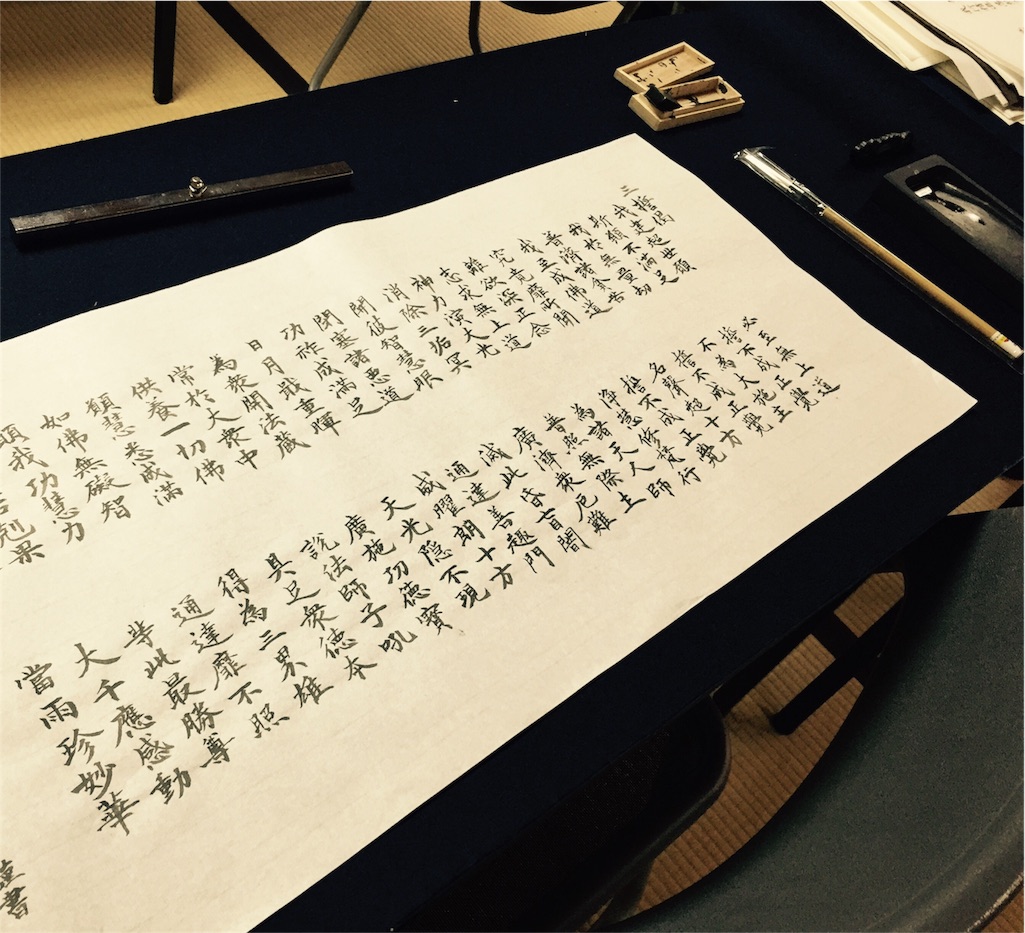 三誓偈
我建超世願 必至無上道
斯願不滿足 誓不成正覺
我於無量劫 不為大施主
普濟諸貧苦 誓不成正覺
我至成佛道 名聲超十方
究竟靡所聞 誓不成正覺
離欲深正念 淨慧修梵行
志求無上道 為諸天人師
神力演大光 普照無際土
消除三垢冥 廣濟衆厄難
開彼智慧眼 滅此昏盲闇
閉塞諸惡道 通達善趣門
功祚成滿足 威曜朗十方
日月戢重暉 天光隠不現
為衆開法藏 廣施功德寶
常於大衆中 說法師子吼
供養一切佛 具足衆德本
願慧悉成滿 得為三界雄
如佛無礙智 通達靡不照
願我功慧力 等此最勝尊
剋果 大千應感動
當雨珍妙華
書